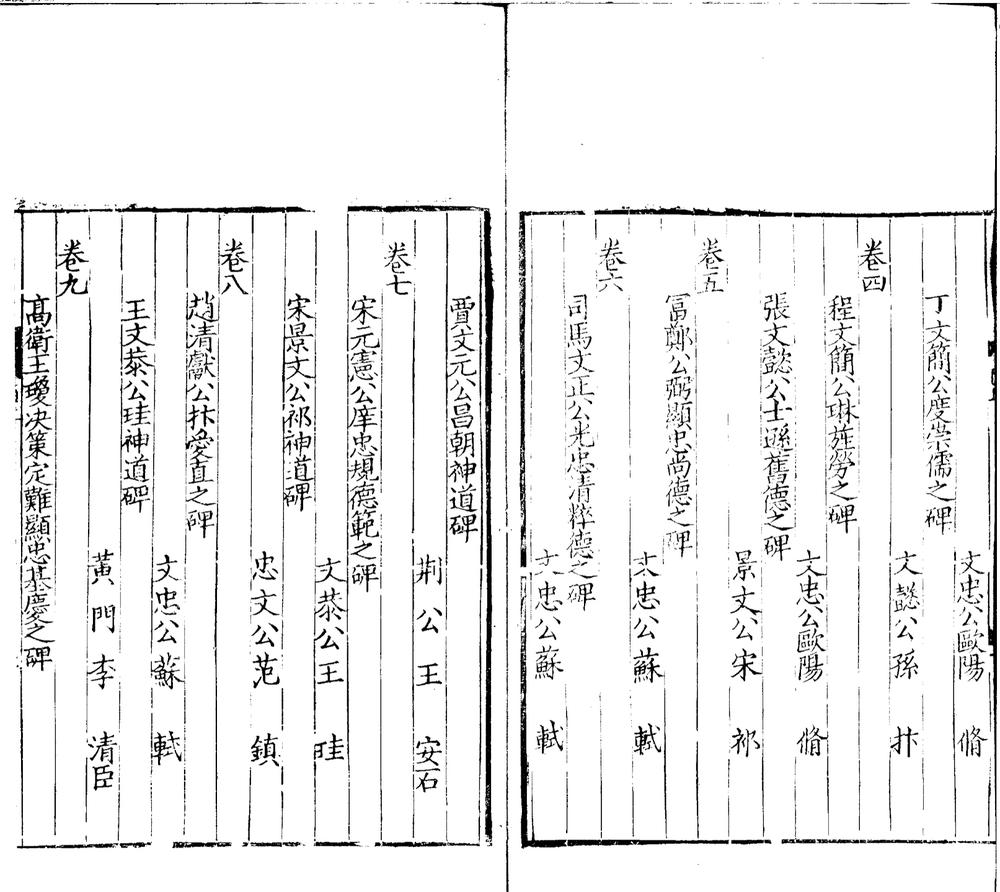 文忠公歐陽脩
丁文簡公度崇儒之碑
文懿公孫抃
卷四
程文簡公琳旌勞之碑
文忠公歐陽脩
張文懿公士遜舊德之碑
景文公宋祁
卷五
冨鄭公弼顯忠尚德之碑
文忠公蘇軾
卷六
司馬文正公光忠清粹德之碑
文忠公蘇軾
賈文元公昌朝神道碑
荆公王安石
卷七
宋元憲公庠忠規德範之碑
文恭公王珪
宋景文公祁神道碑
忠文公范鎮
卷八
趙清獻公抃愛直之碑
文忠公蘇軾
王文恭公珪神道碑
黃門李清臣
卷九
高衛王瓊决策定難顯忠基慶之碑